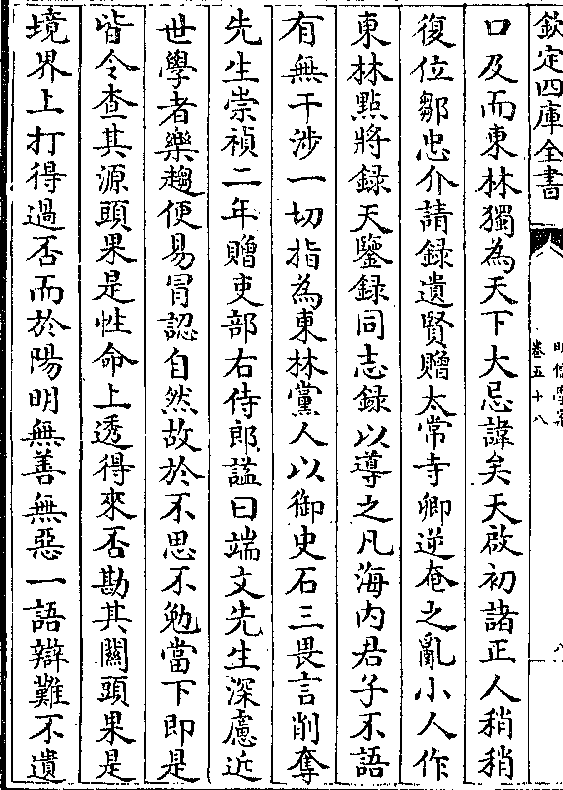 欽定四庫全書
明儒學案
卷五十八
八
口及而東林獨為天下大忌諱矣天啟初諸正人稍稍
復位鄒忠介請録遺賢贈太常寺卿逆奄之亂小人作
東林點將録天鑒録同志録以導之凡海内君子不語
有無干涉一切指為東林黨人以御史石三畏言削奪
先生崇禎二年贈吏部右侍郎諡曰端文先生深慮近
世學者樂趨便易冒認自然故於不思不勉當下即是
皆令查其源頭果是性命上透得來否勘其關頭果是
境界上打得過否而於陽明無善無惡一語辯難不遺